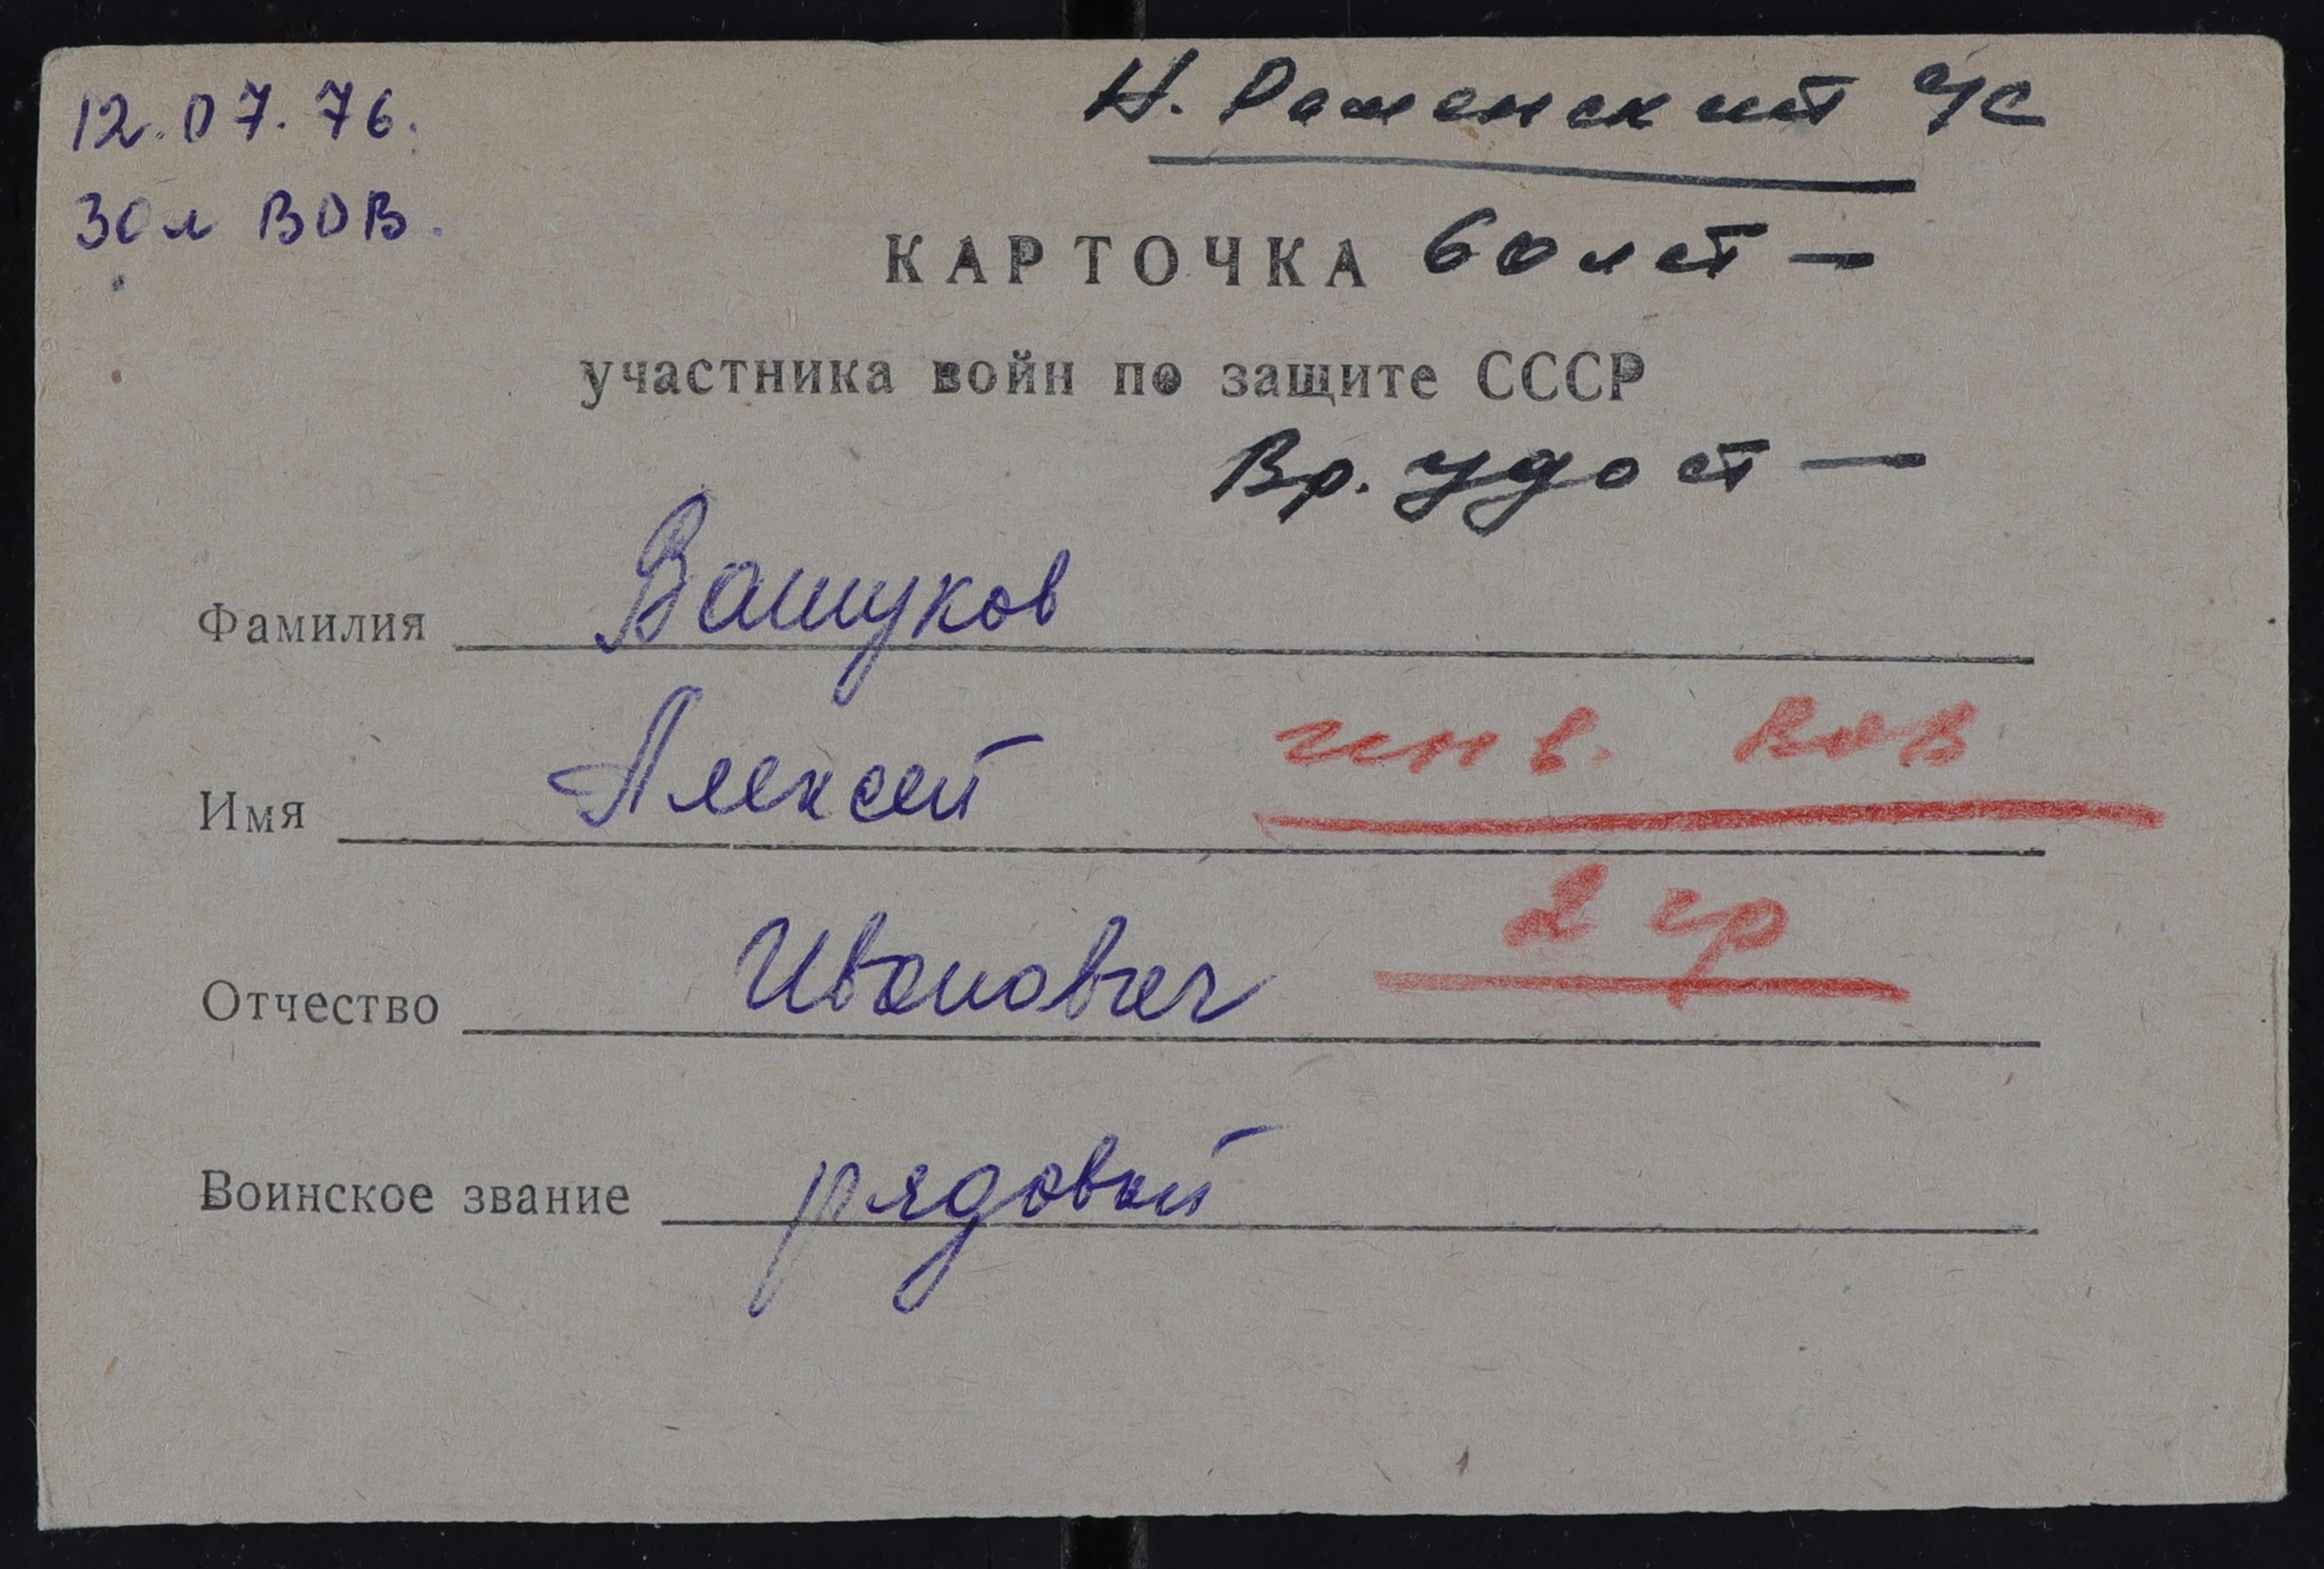 12.07.76.
Н. Раменский ч/с
30 л ВОВ.
КАРТОЧКА 60 лет —
участника войн по защите СССР
Вр. удост —
Фамилия Вашуков
Имя Алексей инв. ВОВ
2 гр
Отчество Иванович
Воинское звание рядовой